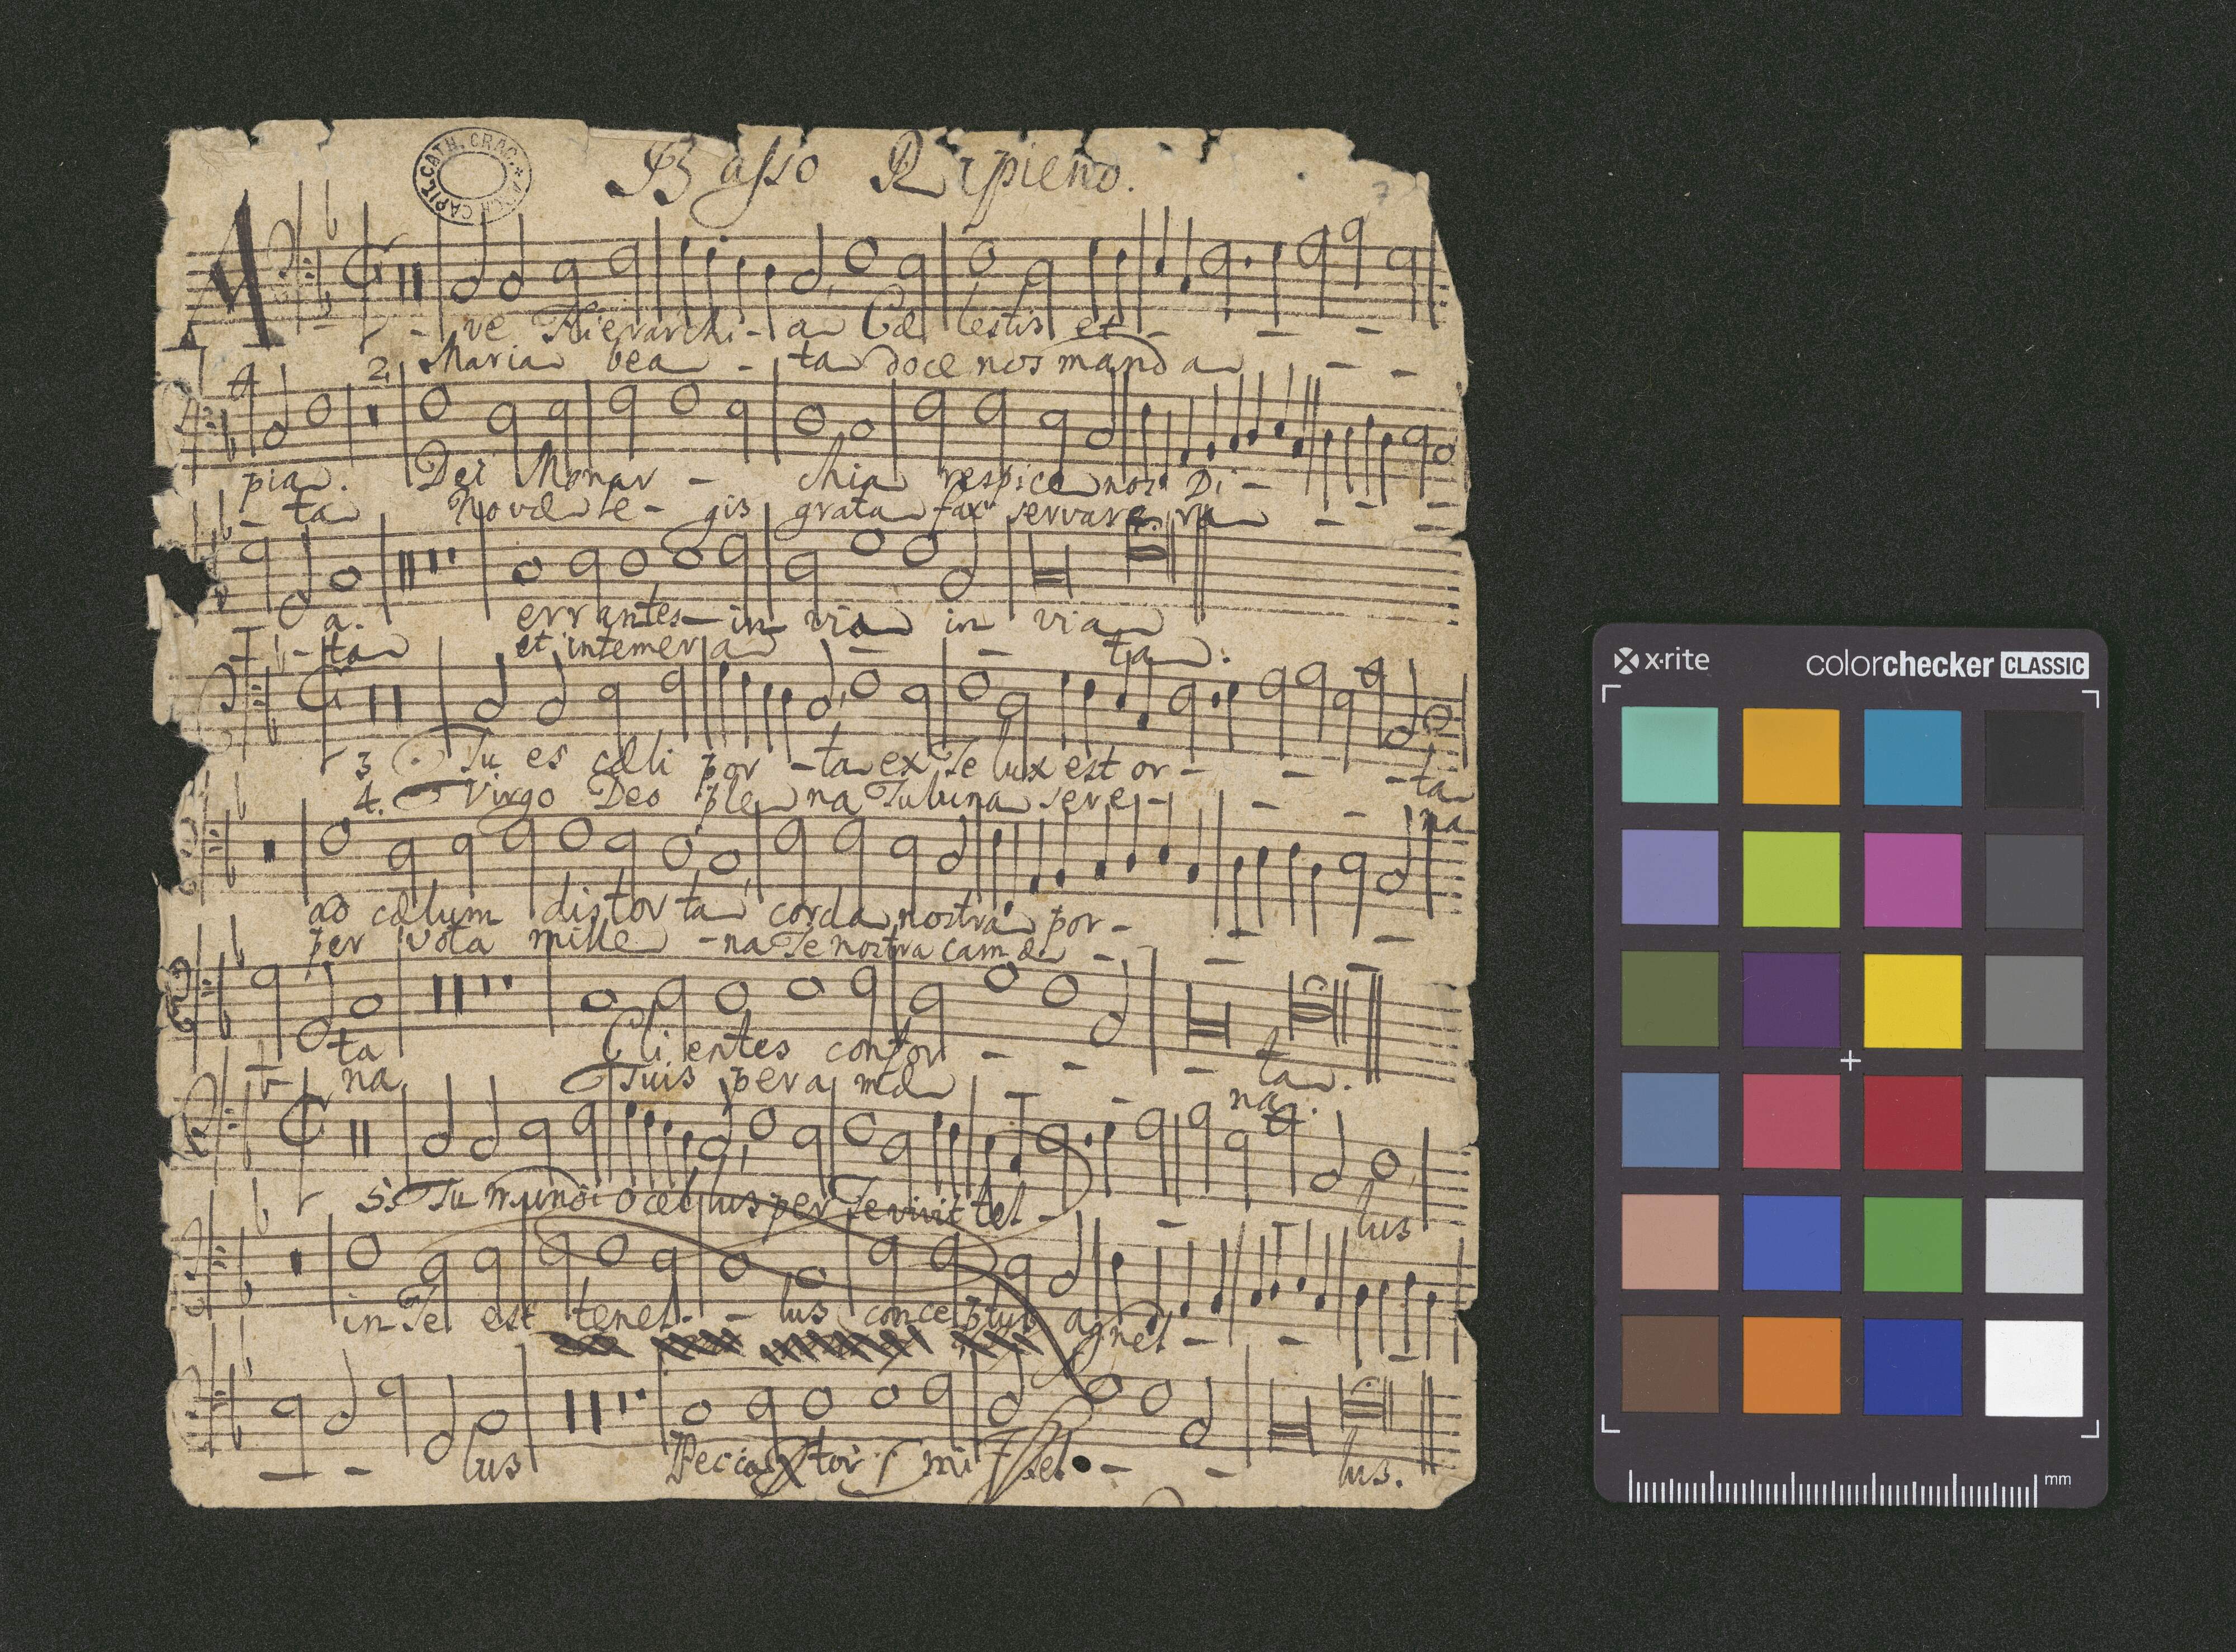 Basso Ripieno.
CAPIT. CATH. CRAC.
A - ve Hierarchi - a Cælestis et - - -
2. Maria bea - ta doce nos manda - -
pia. Dei Monar - chia respice nos Di - - -
- ta Novæ le - gis grata fax servare ra - - -
a. errantes in via in via
- ta et intemera - - ta.
3 Tu es cæli por - ta ex Te lux est or - - - ta
4. Virgo Deo ple na Tu luna sere - - - na
ad cælum distorta corda nostra por - - -
per vota mille - na Te nostra camæ - - -
ta Clientes confor - - - ta.
na Tuis per a mæ - na.
5. Tu mundi ocellus per Te vivit tel - - lus
in Te est tenel - - lus conceptus agnel - - -
- - lus Peccator mi sel - - lus.
x-rite
colorchecker CLASSIC
mm